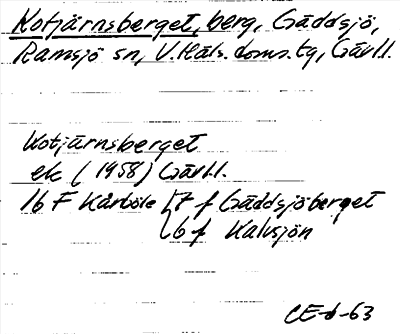 Kotjärnsberget, berg, Gäddsjö,
Ramsjö sn, V. Häls. doms. tg, Gävl.l.
Kotjärnsberget
ek (1958) Gävl.l.
16 F Kårböle 7 f Gäddsjöberget
6 f Kalvsjön
CE-d-63